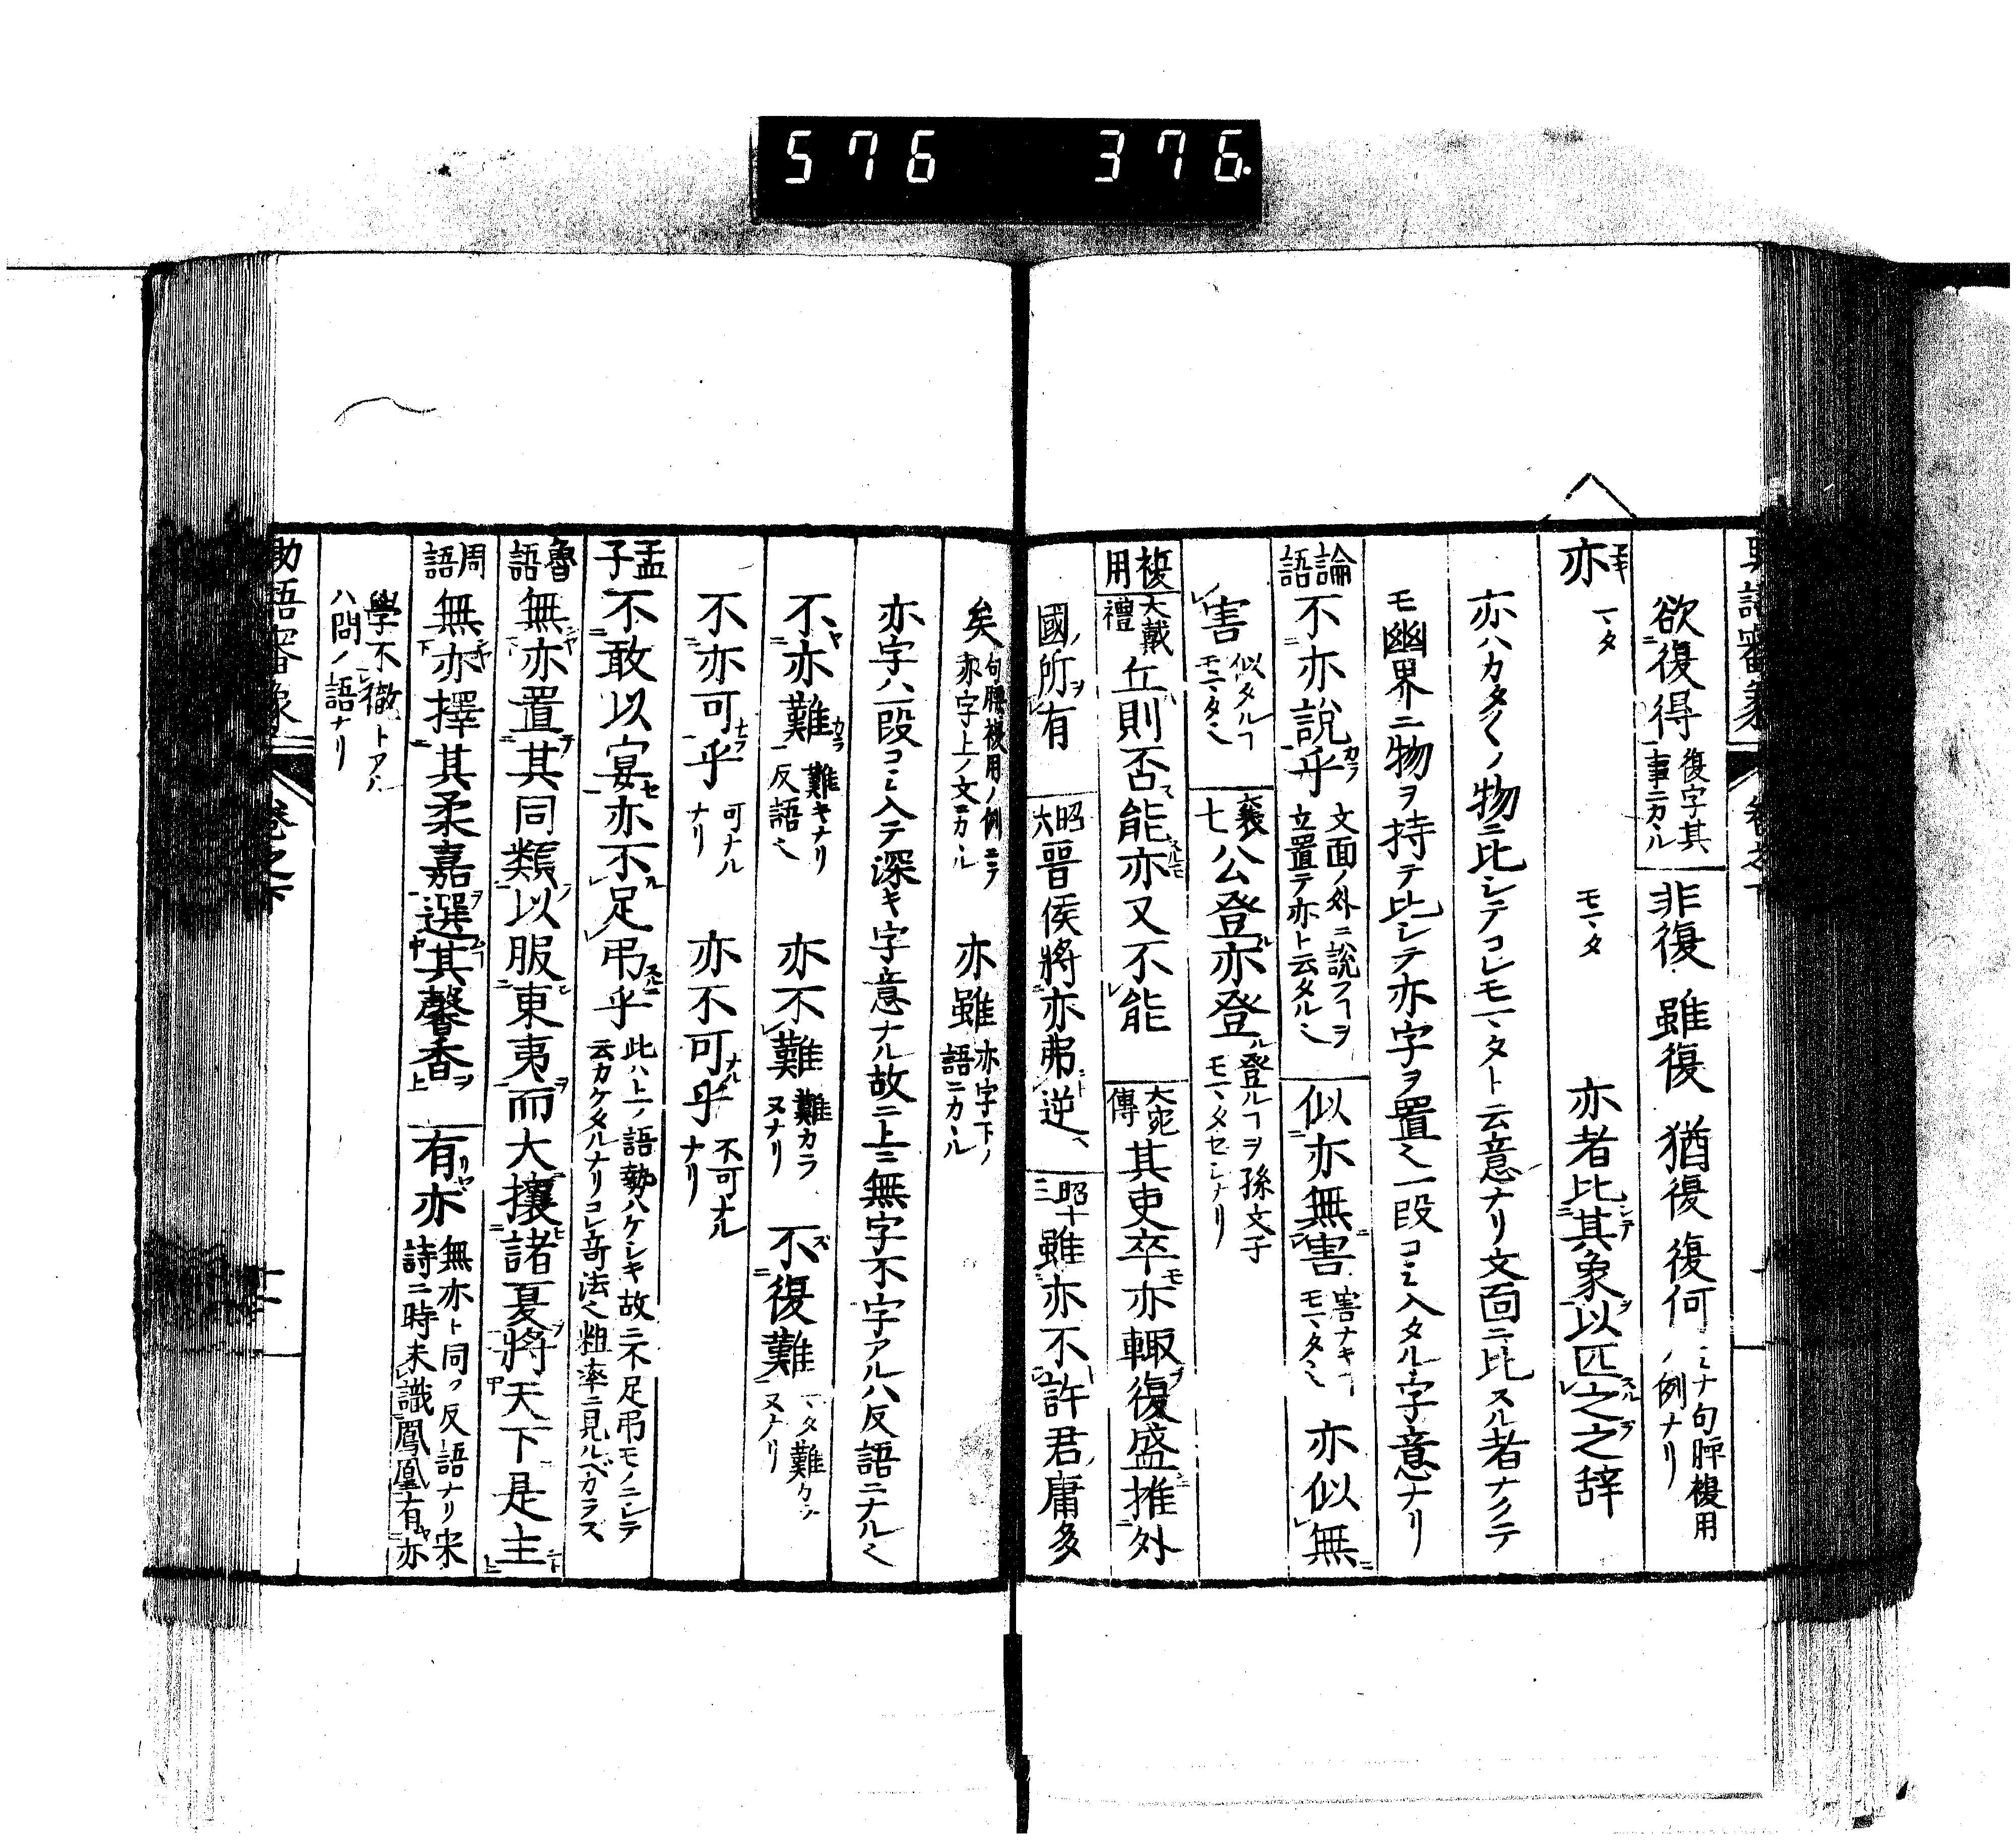 576 376.
欲復得 復字其一事ニカヽル 非復 雖復 猶復 復何 ミナ句腰複用ノ例ナリ
亦 マタ モマタ 亦者比其象以匹之之辞
亦ハカタ〱ノ物ニ比シテコレモマタト云意ナリ文面ニ比スル者ナクテ
モ幽界ニ物ヲ持テ比シテ亦字ヲ置く一段コミ入タル字意ナリ
論語 不亦說乎 文面ノ外ニ說フヿヲ立置テ亦ト云タル也 似亦無害 害ナキヿモマタ也 亦似無
害 似タルヿモマタ也 襄七 公登亦登 登ルヿヲ孫文子モマタセシナリ
複用 大戴禮 丘則否能亦又不能 大宛傳 其吏卒亦輙復盛推外
國所有 昭六 晋侯將亦弗逆 昭十三 雖亦不許君庸多
矣 句腰複用ノ例ニテ亦字上ノ文ニカヽル 亦雖 亦字下ノ語ニカヽル
亦字ハ一段コミ入テ深キ字意ナル故ニ上ニ無字不字アルハ反語ニナル也
不亦難 難キナリ反語也 亦不難 難カラヌナリ 不復難 マタ難クヌナリ
不亦可乎 可ナルナリ 亦不可乎 不可ナルナリ
孟子 不敢以宴亦不足弔乎 此ハ上ノ語勢ハケシキ故ニ不足弔モノニシテ云カケタルナリコレ奇法也粗率ニ見ルベカラス
魯語 無亦置其同類以服東夷而大攘諸夏將天下是主
周語 無亦擇其柔嘉選其馨香 有亦 無亦ト同ク反語ナリ宋詩ニ時未識鳳凰有亦
學不徹トアルハ問ノ語ナリ
助語審象 卷之下